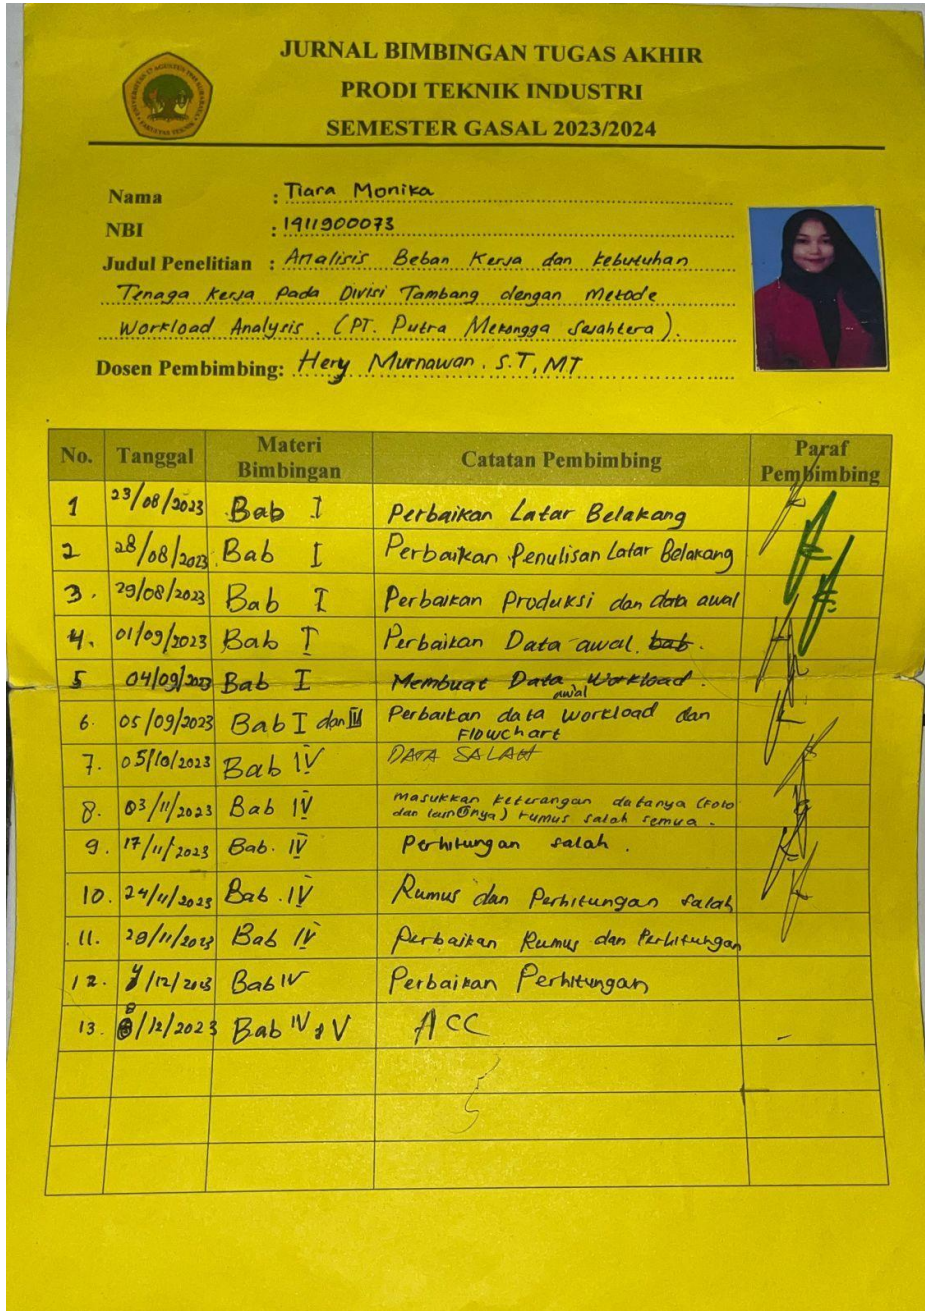 JURNAL BIMBINGAN TUGAS AKHIR
PRODI TEKNIK INDUSTRI
SEMESTER GASAL 2023/2024
Nama : Tiara Monika
NBI : 1911900073
Judul Penelitian : Analisis Beban Kerja dan Kebutuhan
Tenaga Kerja Pada Divisi Tambang dengan Metode
Workload Analysis. (PT. Putra Mekongga Sejahtera).
Dosen Pembimbing: Hery Murnawan. S.T, MT
No. Tanggal Materi Bimbingan Catatan Pembimbing Paraf Pembimbing
1 23/08/2023 Bab I Perbaikan Latar Belakang
2 28/08/2023 Bab I Perbaikan Penulisan Latar Belakang
3. 29/08/2023 Bab I Perbaikan Produksi dan data awal
4. 01/09/2023 Bab I Perbaikan Data awal bab.
5 04/09/2023 Bab I Membuat Data awal Workload.
6. 05/09/2023 Bab I dan Perbaikan data workload dan
Flowchart
7. 05/10/2023 Bab IV DATA SALAH
8. 03/11/2023 Bab IV Masukkan keterangan datanya (Foto
dan rumus salah semua.
9. 17/11/2023 Bab. IV Perhitungan salah.
10. 24/11/2023 Bab. IV Rumus dan Perhitungan salah
11. 28/11/2023 Bab IV Perbaikan Rumus dan Perhitungan
12. /12/2023 Bab IV Perbaikan Perhitungan
13. 8/12/2023 Bab IV V ACC